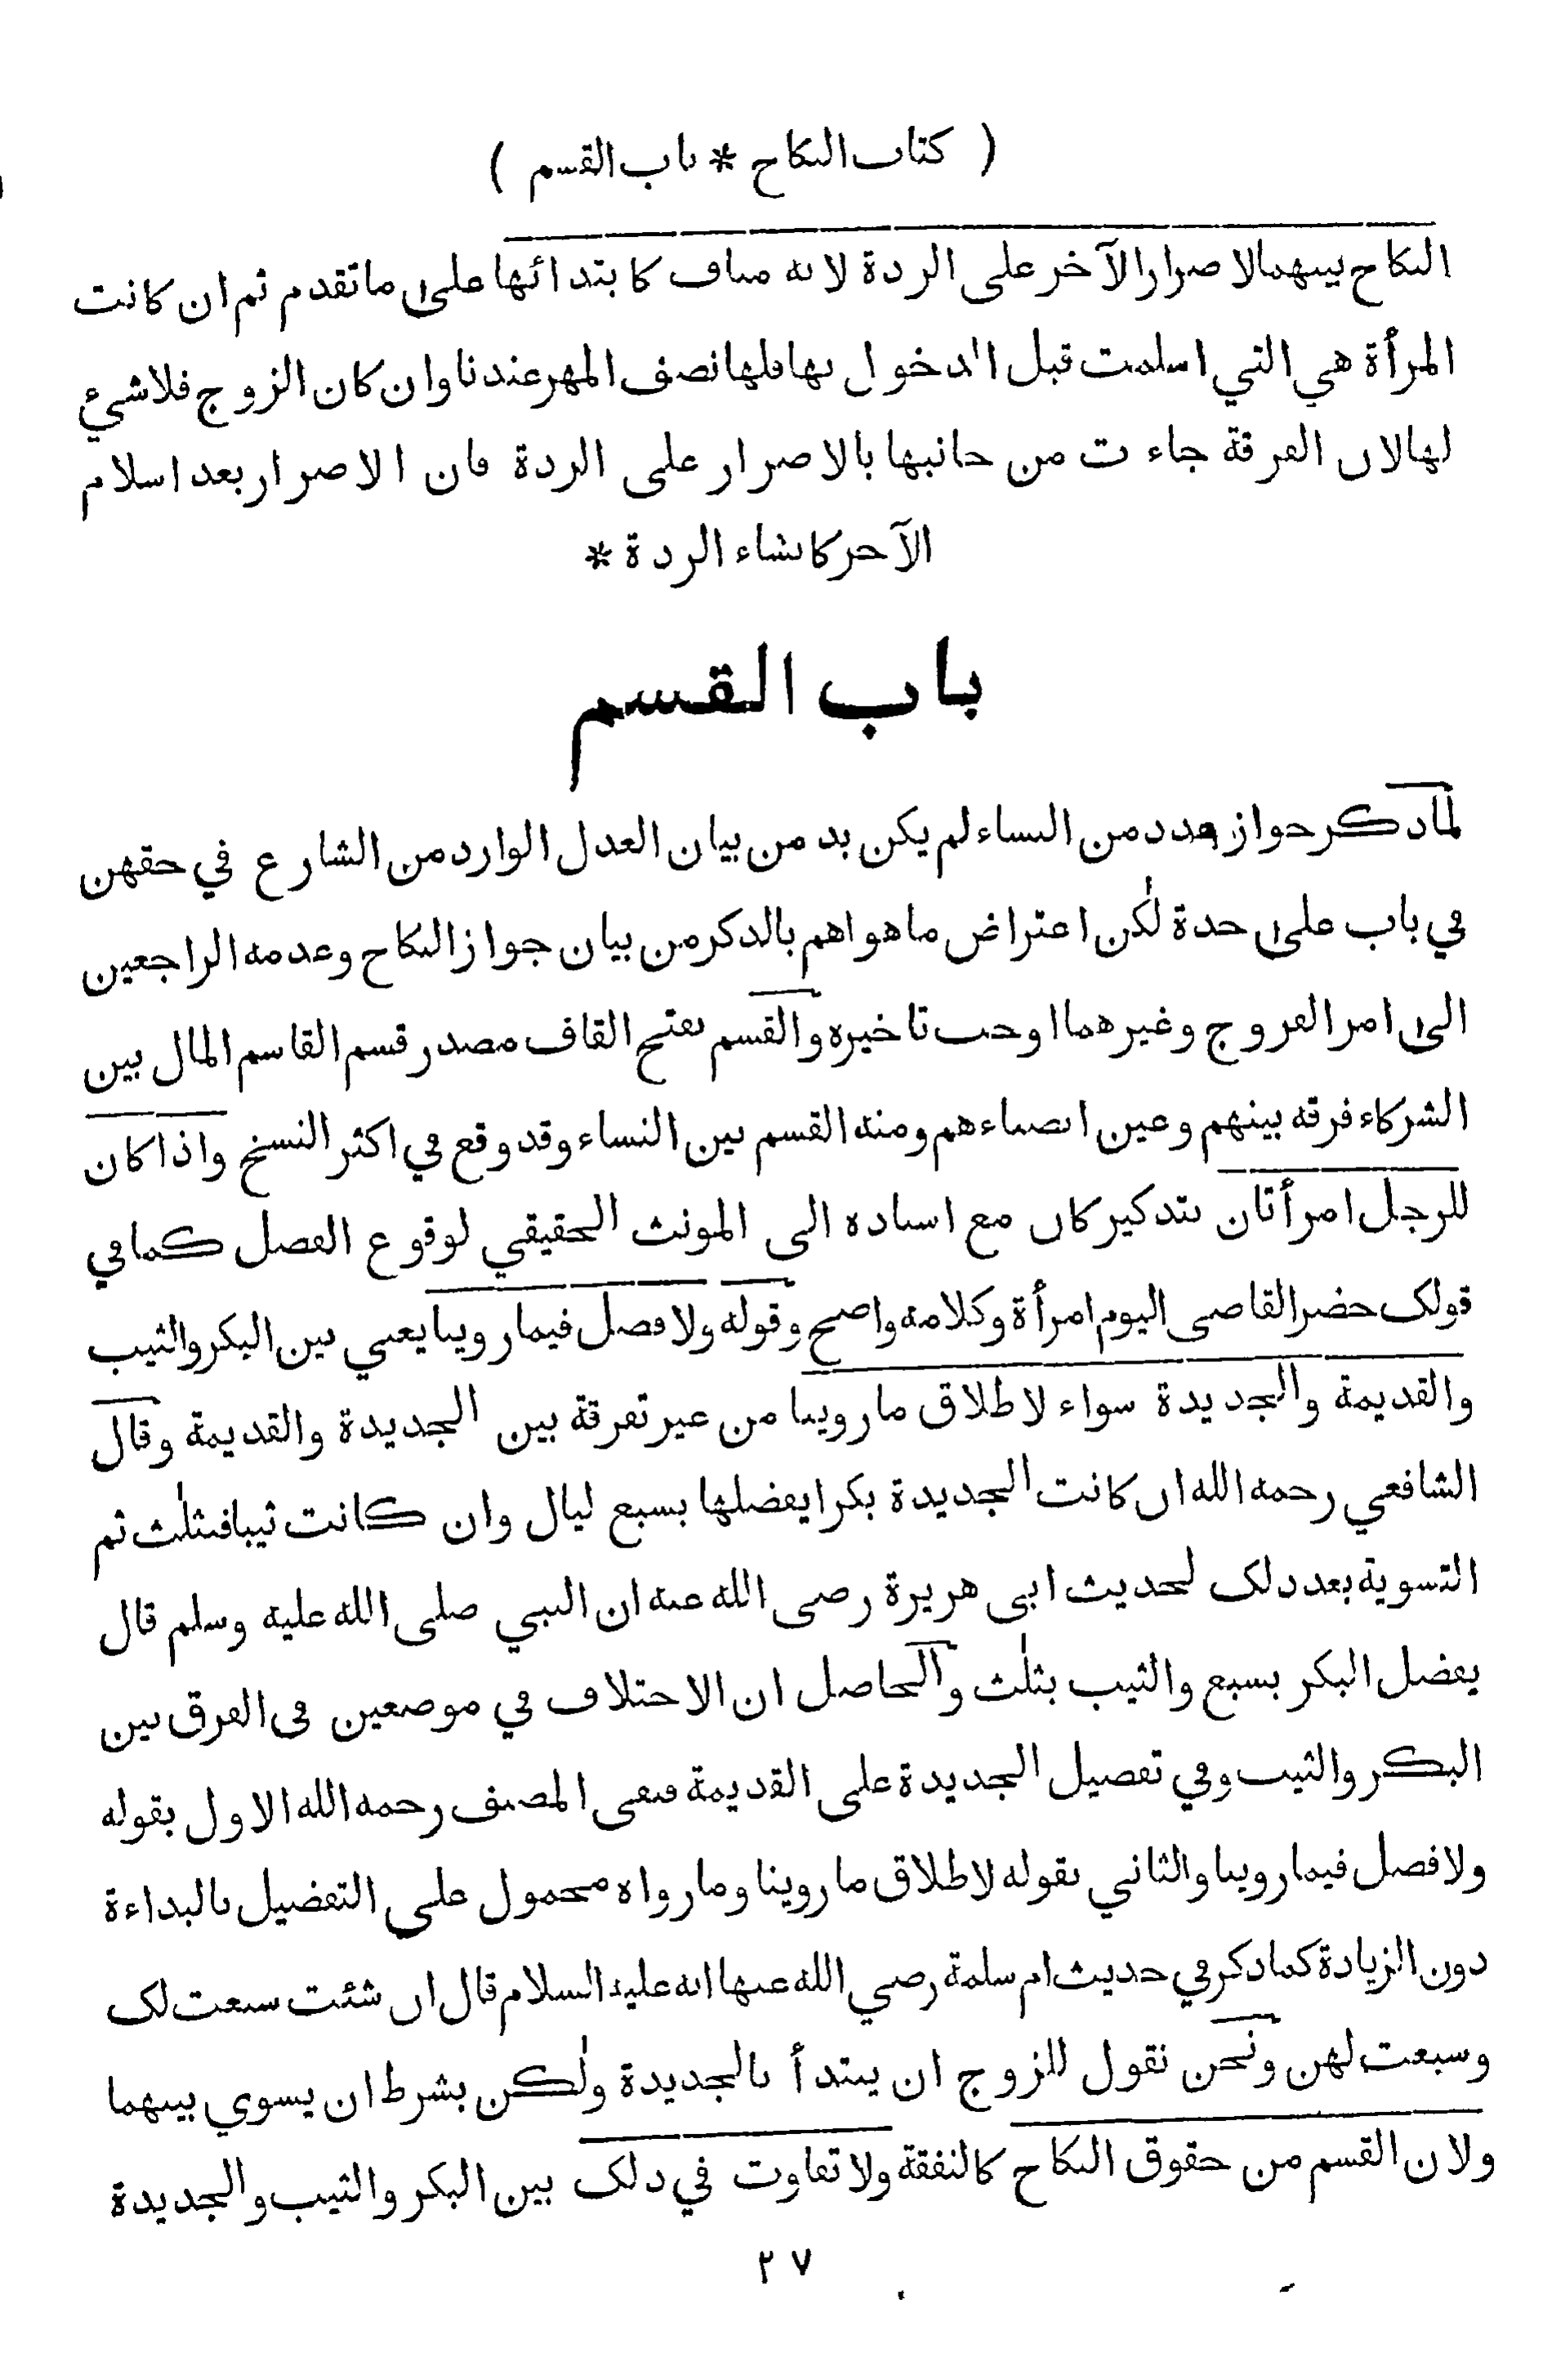 ( كتاب النكاح * باب القسم )
النكاح بينهما لاصرار الآخر على الردة لانه مناف كابتدائها على ما تقدم ثم ان كانت
المرأة هي التي اسلمت قبل الدخول بها فلها نصف المهر عندنا وان كان الزوج فلا شيء
لها لان الفرقة جاءت من جانبها بالاصرار على الردة فان الاصرار بعد اسلام
الآخر كانشاء الردة *
باب القسم
لما ذكر جواز عدد من النساء لم يكن بد من بيان العدل الوارد من الشارع في حقهن
في باب على حدة لٰكن اعتراض ما هو اهم بالذكر من بيان جواز النكاح وعدمه الراجعين
الى امر الفروج وغيرهما اوجب تاخيره والقسم بفتح القاف مصدر قسم القاسم المال بين
الشركاء فرقه بينهم وعين انصباءهم ومنه القسم بين النساء وقد وقع في اكثر النسخ واذا كان
للرجل امرأتان بتذكير كان مع اسناده الى المونث الحقيقي لوقوع الفصل كما في
قولك حضر القاضي اليوم امرأة وكلامه واضح وقوله ولا فصل فيما روينا يعني بين البكر والثيب
والقديمة والجديدة سواء لاطلاق ما روينا من غير تفرقة بين الجديدة والقديمة وقال
الشافعي رحمه الله ان كانت الجديدة بكرا يفضلها بسبع ليال وان كانت ثيبا فبثلٰث ثم
التسوية بعد ذلك لحديث ابى هريرة رضى الله عنه ان النبي صلى الله عليه وسلم قال
يفضل البكر بسبع والثيب بثلٰث والحاصل ان الاختلاف في موضعين فى الفرق بين
البكر والثيب وفي تفضيل الجديدة على القديمة فنفى المصنف رحمه الله الاول بقوله
ولا فصل فيما روينا والثاني بقوله لاطلاق ما روينا وما رواه محمول على التفضيل بالبداءة
دون الزيادة كما ذكر في حديث ام سلمة رضي الله عنها انه عليه السلام قال ان شئت سبعت لك
وسبعت لهن ونحن نقول للزوج ان يبتدأ بالجديدة ولٰكن بشرط ان يسوي بينهما
ولان القسم من حقوق النكاح كالنفقة ولا تفاوت في ذلك بين البكر والثيب والجديدة
٢٧